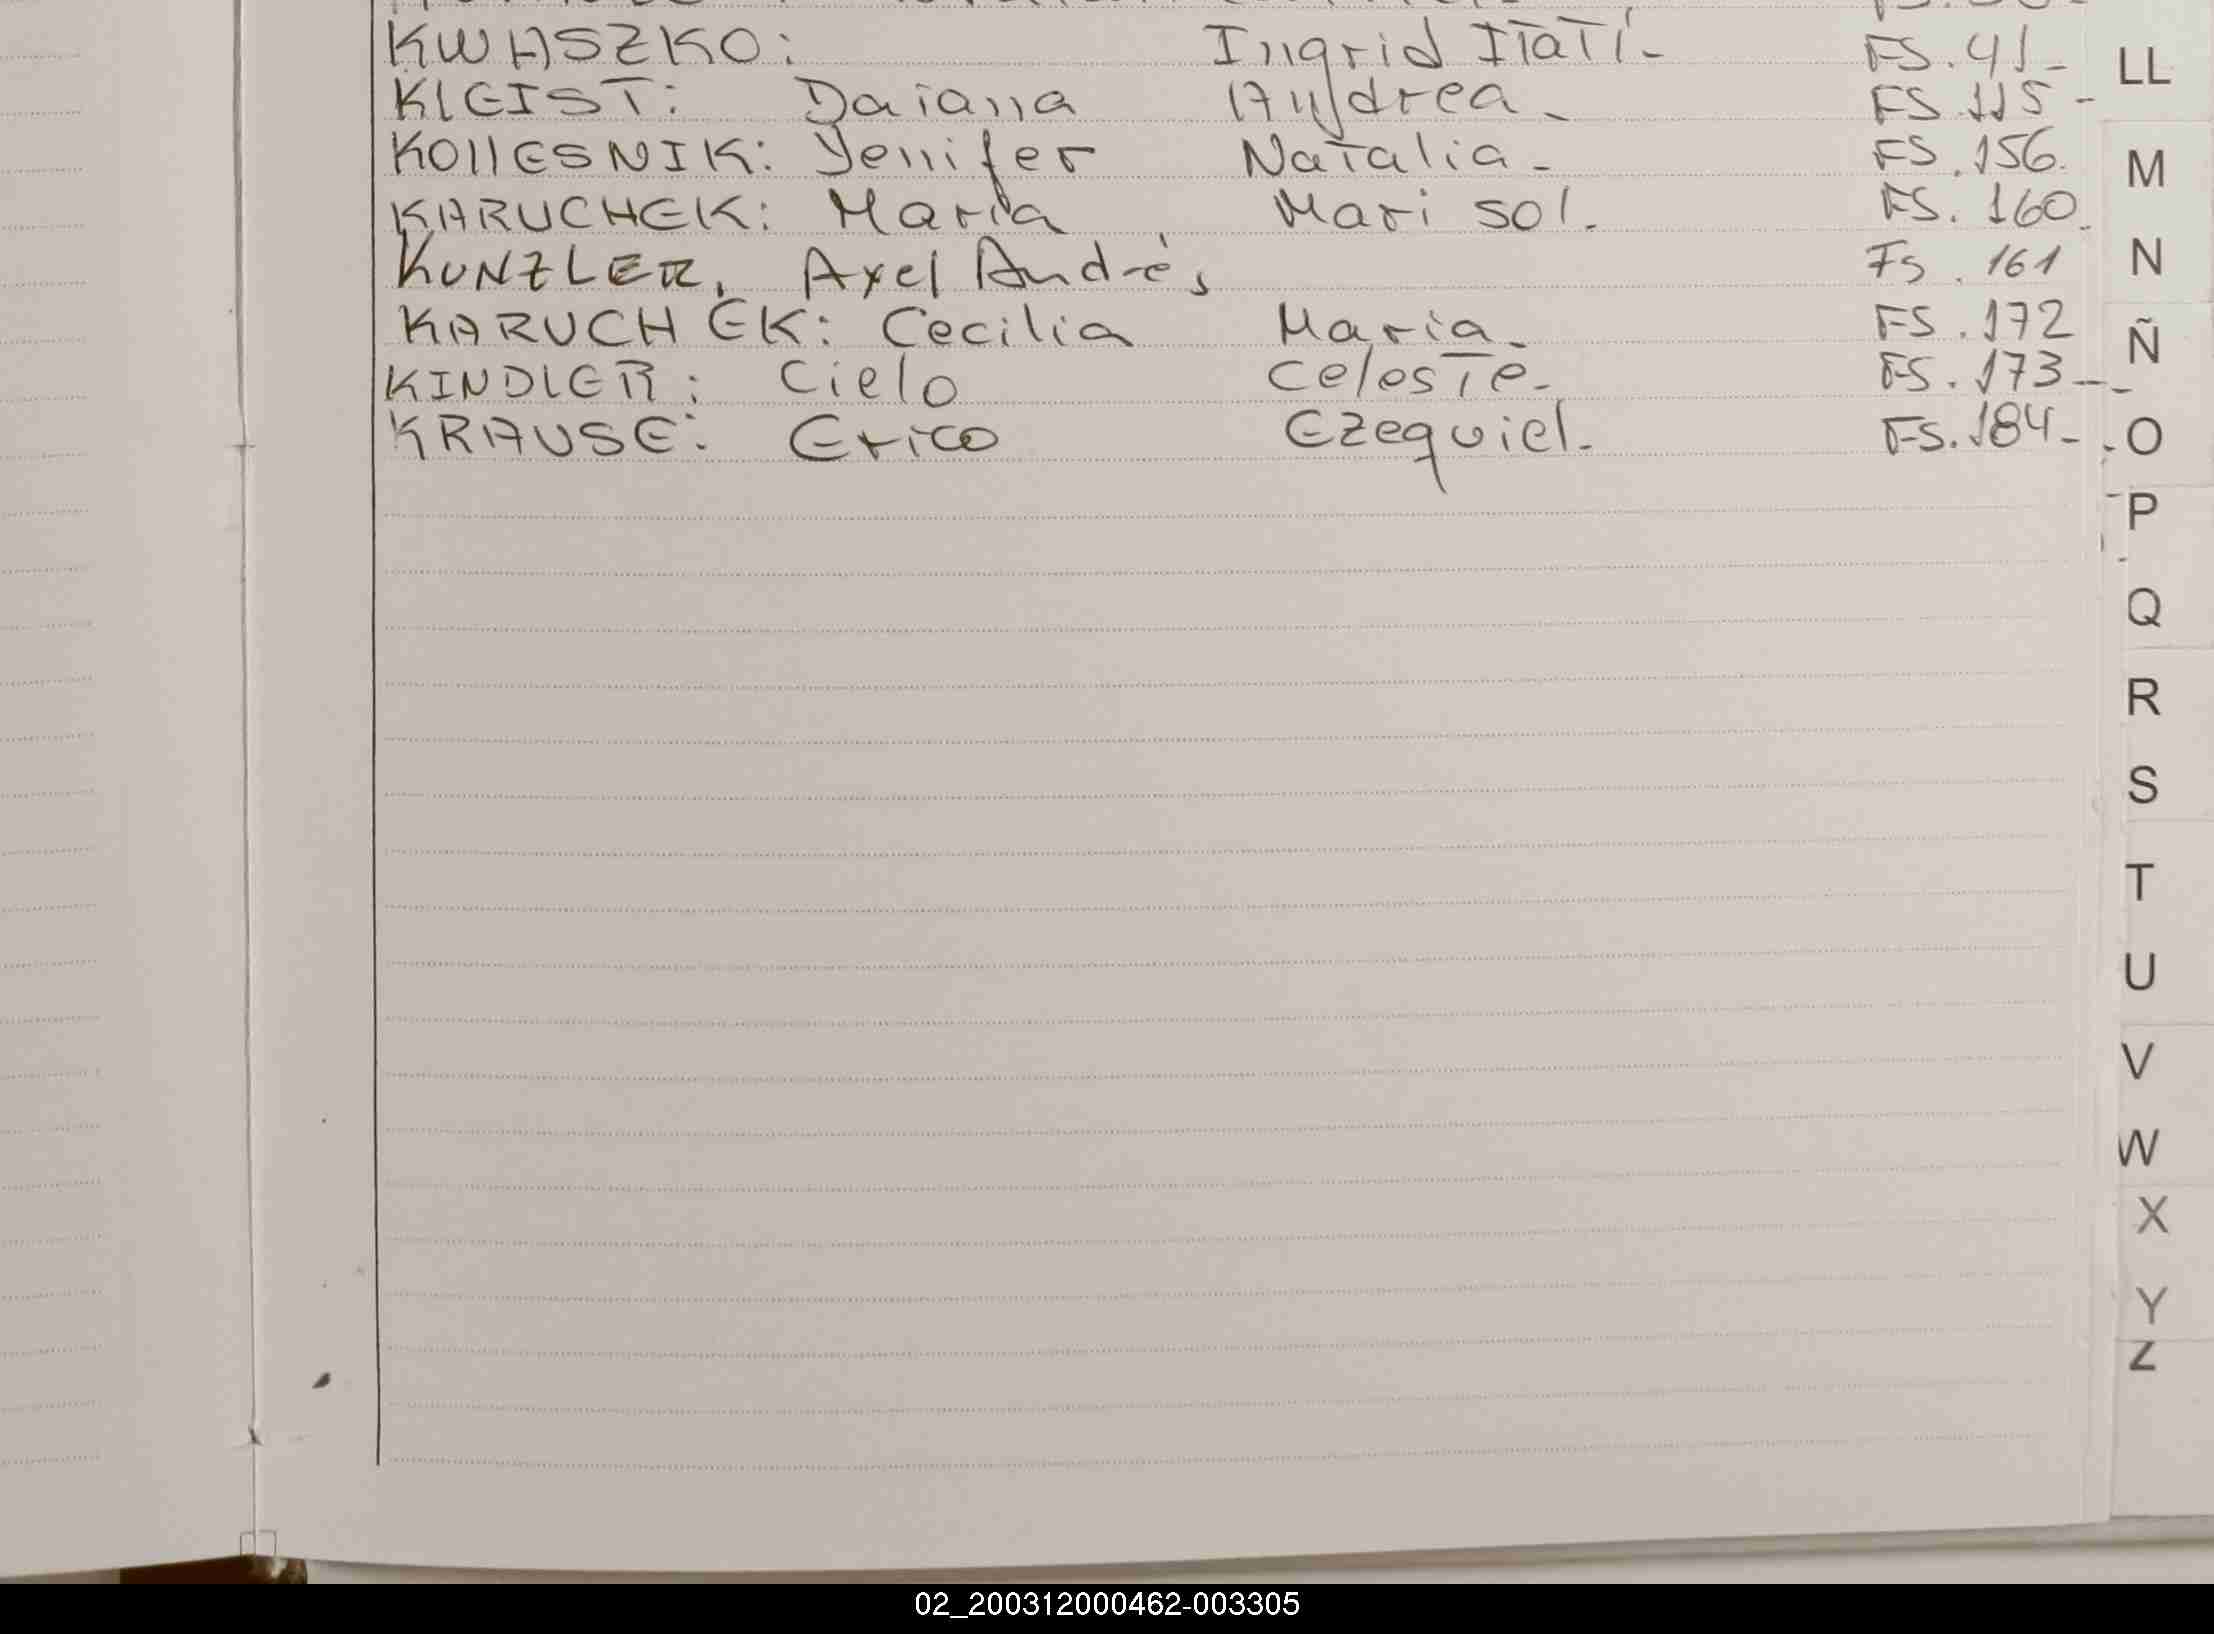 KWASZKO: Ingrid Itatí- FS. 41-
KLEIST: Daiana Andrea- FS 115-
KOLLESNIK: Yenifer Natalia- FS. 156.
KARUCHEK: María Mari sol. FS. 160.
KUNZLER, Axel Andrés Fs. 161
KARUCHEK: Cecilia María- FS. 172
KINDLER: Cielo Celeste- FS. 173-
KRAUSE: Erico Ezequiel- FS. 184-
LL
M
N
Ñ
O
P
Q
R
S
T
U
V
W
X
Y
Z
02_200312000462-003305